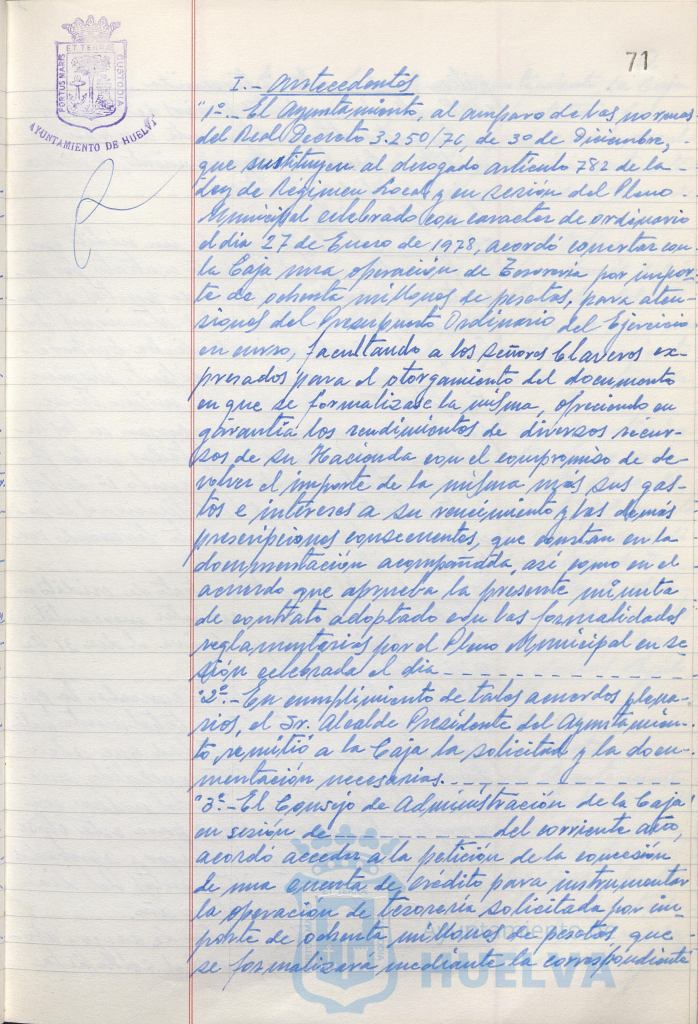 71
PORTUS MARIS ET TERRAE CUSTODIA
AYUNTAMIENTO DE HUELVA
I.- Antecedentes
"1º.- El Ayuntamiento, al amparo de las normas
del Real Decreto 3.250/76, de 30 de Diciembre, -
que sustituyen al derogado artículo 782 de la -
Ley de Régimen Local y en sesión del Pleno -
Municipal celebrado con caracter de ordinario
el día 27 de Enero de 1978, acordó concertar con
la Caja una operación de Tesorería por impor-
te de ochenta millones de pesetas, para aten-
ciones del Presupuesto Ordinario del Ejercicio
en curso, facultando a los señores Claveros ex-
presados para el otorgamiento del documento
en que se formalizase la misma, ofreciendo en
garantía los rendimientos de diversos recur-
sos de su Hacienda con el compromiso de de
volver el importe de la misma más sus gas-
tos e intereses a su vencimiento y las demás
prescripciones consecuentes, que constan en la
documentación acompañada, así como en el
acuerdo que aprueba la presente minuta
de contrato adoptado con las formalidades
reglamentarias por el Pleno Municipal en se
sión celebrada el día - - - - - - - - - - - -
"2º.- En cumplimiento de tales acuerdos plena-
rios, el Sr. Alcalde Presidente del Ayuntamien-
to, remitió a la Caja la solicitud y la docu-
mentación necesarias. - - - - - - - - - - - -
"3º.- El Consejo de Administración de la Caja
en sesión de - - - - - - - - - - del corriente año,
acordó acceder a la petición de la concesión
de una cuenta de crédito para instrumentar
la operación de tesorería solicitada por im-
porte de ochenta millones de pesetas que -
se formalizará mediante la correspondiente
HUELVA